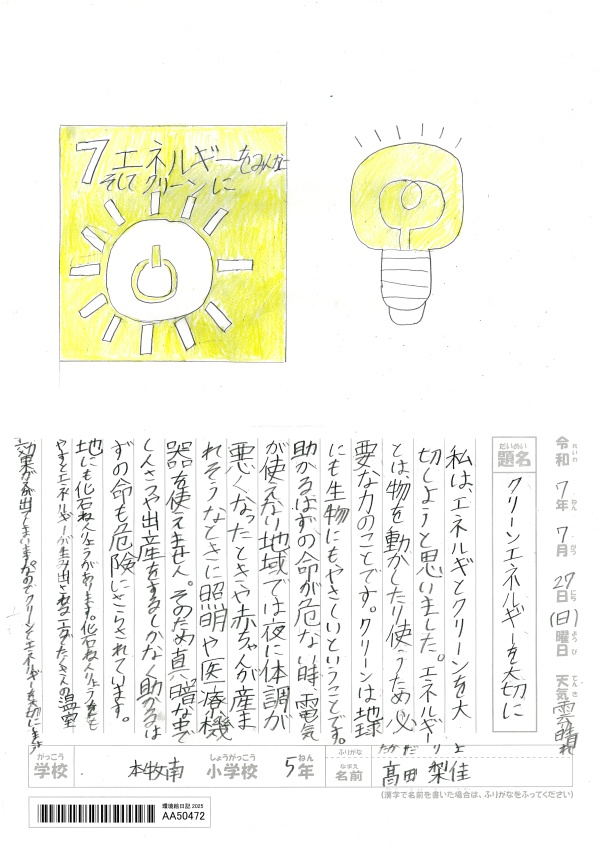 7エネルギーをみんなに
そしてクリーンに
令和7年7月27日(日)曜日 天気 晴れ
れいわ ねん がつ にち ようび てんき
だいめい
題名
クリーンエネルギーを大切に
私は、エネルギとクリーンを大
切しようと思いました。エネルギー
とは、物を動かしたり使うため必
要な力のことです。クリーンは地球
にも生物にもやさしいということです。
助かるはずの命が危ない時、電気
が使えない地域では夜に体調が
悪くなったときや赤ちゃんが産ま
れそうなときに照明や医療機
器を使えません。そのため真暗なまま
しんさつや出産をするしかなく助かるは
ずの命も危険にさらされています。
地にも化石ねんりょうがあります。化石ねんりょうをも
やすとエネルギーが生み出されるエダたくさんの温室
効果がが出てしまいます。なのでクリーンとエネルギーを大切にしましょう
がっこう
学校
本牧南
しょうがっこう
小学校
5年
ねん
ふりがな
たかだ りよ
なまえ
名前
髙田 梨佳
(漢字で名前を書いた場合は、ふりがなをふってください)
環境絵日記 2025
AA50472